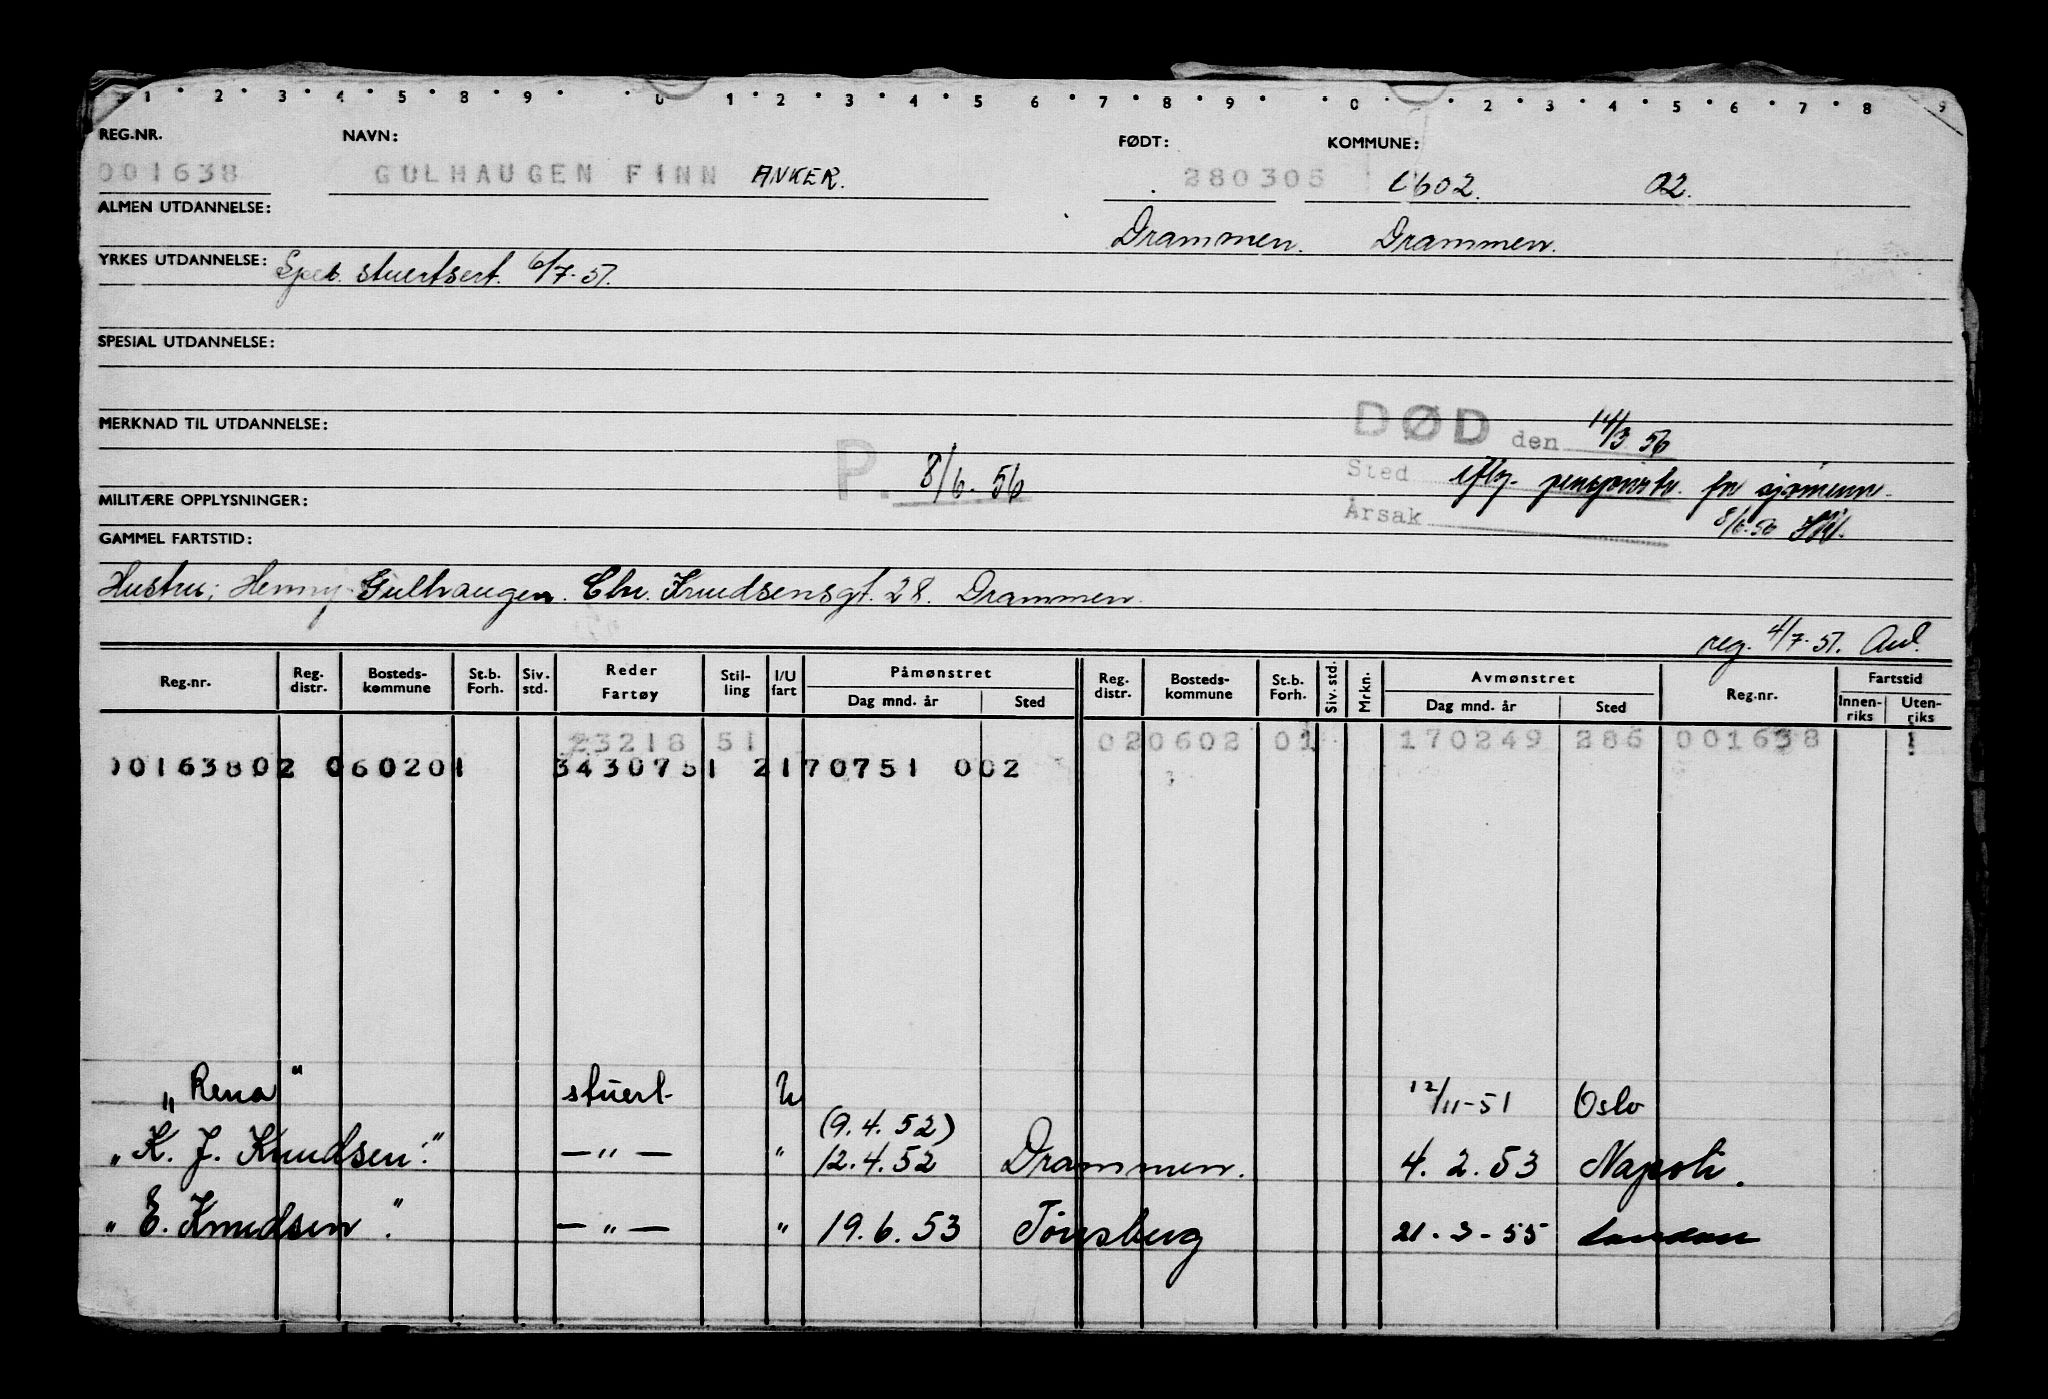 1 2 3 4 5 8 9 0 1 2 3 4 5 6 7 8 9 0 2 3 4 5 6 7 8 9
REG.NR. NAVN: FØDT: KOMMUNE:
001638 GULHAUGEN FINN ANKER. 280305 0602. 02.
ALMEN UTDANNELSE: Drammen. Drammen.
YRKES UTDANNELSE: Spes. stuertsert. 6/7-51.
SPESIAL UTDANNELSE:
MERKNAD TIL UTDANNELSE: DØD den 14/3 56
P. 8/6. 56 Sted iflg. pensjonstr. for sjømenn.
MILITÆRE OPPLYSNINGER: Årsak 8/6.56
GAMMEL FARTSTID:
Hustru; Henny Gulhaugen. Chr. Knudsensgt. 28. Drammen.
reg. 4/7-51.
Reg.nr. Reg. distr. Bosteds-kommune St.b. Forh. Siv. std. Reder Fartøy Stil-ling I/U fart Påmønstret Reg. distr. Bosteds-kommune St.b. Forh. Siv. std. Mrkn. Avmønstret Reg.nr. Fartstid
Dag mnd. år Sted Dag mnd. år Sted Innen-riks Uten-riks
23218 51 020602 01 170249 286 001638 1
00163802 060201 3430751 2170751 002
"Rena" stuert U 12/11-51 Oslo
(9.4.52)
"K. J. Knudsen." — " — " 12.4.52 Drammen. 4.2.53 Napoli.
"E. Knudsen." — " — " 19.6.53 Tønsberg 21-3-55 London